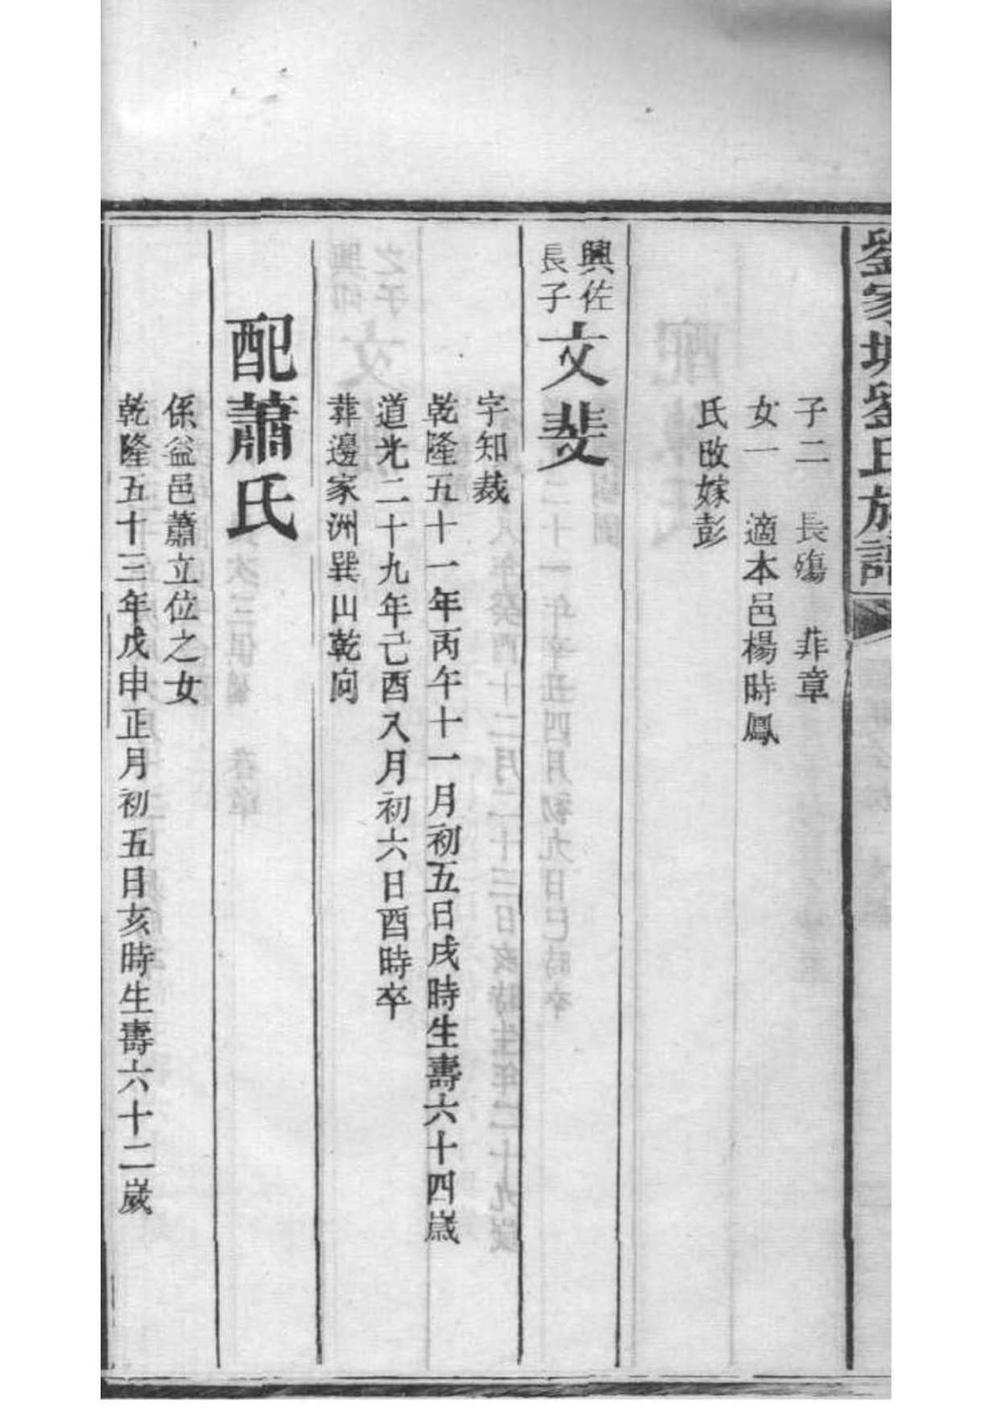 劉家塘劉氏族譜
子二　長殤　菲章
女一　適本邑楊時鳳
氏改嫁彭
興佐
長子
文斐
字知裁
乾隆五十一年丙午十一月初五日戌時生壽六十四歲
道光二十九年己酉八月初六日酉時卒
葬邊家洲巽山乾向
配蕭氏
係益邑蕭立位之女
乾隆五十三年戊申正月初五日亥時生壽六十二歲